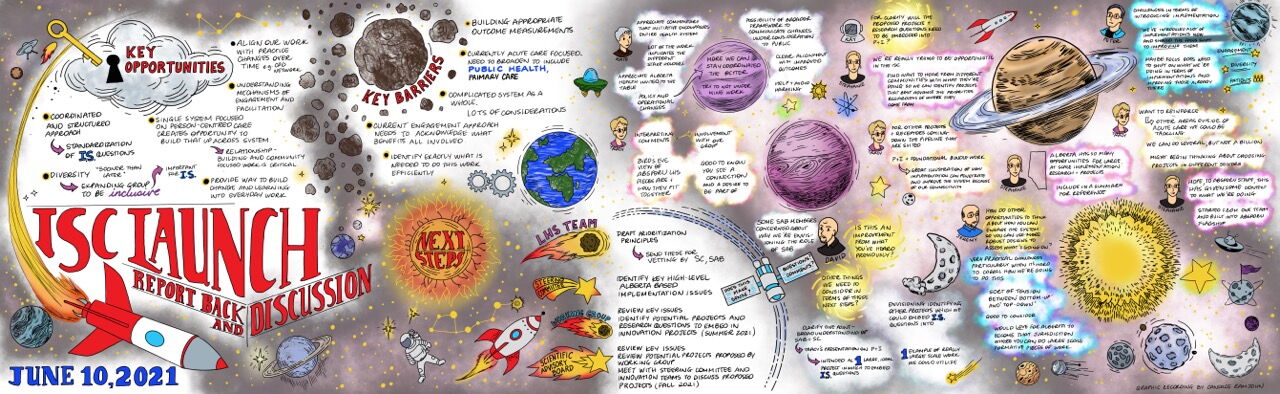 KEY
OPPORTUNITIES
ALIGN OUR WORK
WITH PRACTICE
CHANGES OVER
TIME
NETWORK
UNDERSTANDING
MECHANISMS OF
ENGAGEMENT AND
FACILITATION
COORDINATED
AND STRUCTURED
APPROACH
STANDARDIZATION
OF I.S. QUESTIONS
DIVERSITY "SOONER THAN
LATER"
EXPANDING GROUP
TO BE inclusive
IMPORTANT
FOR THE
I.S.
SINGLE SYSTEM FOCUSED
ON PERSON-CENTRED CARE
CREATES OPPORTUNITY TO
BUILD THAT UP ACROSS SYSTEM
RELATIONSHIP-
BUILDING AND COMMUNITY
FOCUSED WORK IS CRITICAL
PROVIDE WAY TO BUILD
CHANGE AND LEARNING
INTO EVERYDAY WORK
ISC LAUNCH
REPORT BACK
AND DISCUSSION
JUNE 10, 2021
KEY BARRIERS
BUILDING APPROPRIATE
OUTCOME MEASUREMENTS
CURRENTLY ACUTE CARE FOCUSED.
NEED TO BROADEN TO INCLUDE
PUBLIC HEALTH,
PRIMARY CARE
COMPLICATED SYSTEM AS A
WHOLE.
LOTS OF CONSIDERATIONS
CURRENT ENGAGEMENT APPROACH
NEEDS TO ACKNOWLEDGE WHAT
BENEFITS ALL INVOLVED
IDENTIFY EXACTLY WHAT IS
NEEDED TO DO THIS WORK
EFFICIENTLY
NEXT
STEPS
LHS TEAM
DRAFT PRIORITIZATION
PRINCIPLES
SEND THESE FOR
VETTING BY SC, SAB
STEERING
COMMITTEE
IDENTIFY KEY HIGH-LEVEL
ALBERTA BASED
IMPLEMENTATION ISSUES
WORKING GROUP
REVIEW KEY ISSUES
IDENTIFY POTENTIAL PROJECTS AND
RESEARCH QUESTIONS TO EMBED IN
INNOVATION PROJECTS (SUMMER 2021)
SCIENTIFIC
ADVISORY
BOARD
REVIEW KEY ISSUES
REVIEW POTENTIAL PROJECTS PROPOSED BY
WORKING GROUP
MEET WITH STEERING COMMITTEE AND
INNOVATION TEAMS TO DISCUSS PROPOSED
PROJECTS (FALL 2021)
DOES THIS
MAKE
SENSE?
QUESTIONS,
COMMENTS?
APPRECIATE COMMENTARY
THAT INITIATIVE ENCOMPASSES
ENTIRE HEALTH SYSTEM
LOT OF THE WORK
INFLUENCES THE
DIFFERENT
STAKEHOLDERS
APPRECIATE ALBERTA
HEALTH INVITED TO THE
TABLE
POLICY AND
OPERATIONAL
CHANGES
POSSIBILITY OF BROADER
FRAMEWORK TO
COMMUNICATE CHANGES
UNDER CONSIDERATION
TO PUBLIC
MORE WE CAN
STAY COORDINATED
THE BETTER
TRY TO NOT UNDER
MINE WORK
CLEAR ALIGNMENT
WITH IMPROVED
OUTCOMES
INTERPRETING
COMMENTS
INVOLVEMENT
WITH OUR
GROUP
BIRDS EYE
VIEW OF
ABSPORU LHS
PIECES ARE +
HOW THEY FIT
TOGETHER
GOOD TO KNOW
YOU SEE A
CONNECTION
AND A DESIRE TO
BE PART OF
KAY
FOR CLARITY WILL THE
PROPOSED PROJECTS +
RESEARCH QUESTIONS NEED
TO BE EMBEDDED INTO
P+I?
STEPHANIE
WE'RE REALLY TRYING TO BE OPPORTUNISTIC
IN THE SC
FIND WAYS TO HEAR FROM DIFFERENT
COMMUNITIES ABOUT WHAT THEY'RE
DOING SO WE CAN IDENTIFY PROJECTS
THAT BEST ADVANCE THE PRIORITIES
REGARDLESS OF WHERE THEY
COME FROM
FOR OTHER PROJECTS
+ RESEARCHERS COMING
DOWN THE PIPELINE THAT
ARE SIMILAR
P+I = FOUNDATIONAL BINDER WORK
GREAT ILLUSTRATION OF HOW
IMPLEMENTATION CAN PERMEATE
THROUGHOUT THE SYSTEM BECAUSE
OF OUR CONNECTIVITY
ALBERTA HAS SO MANY
OPPORTUNITIES FOR LARGE
AT SCALE IMPLEMENTATION
RESEARCH + PROJECTS
INCLUDE IN A SUMMARY
FOR REFERENCE
PETER
CHALLENGES IN TERMS OF
INTRODUCING IMPLEMENTATION
MAYBE FOCUS DOES NEED
TO SHIFT ON WHAT WE'RE
DOING IN TERMS OF
IMPLEMENTATIONS AND
IMPROVING THOSE ALREADY
THERE
ENGAGEMENT
DIVERSITY
PATIENTS
WANT TO REINFORCE
OTHER AREAS OUTSIDE OF
ACUTE CARE WE COULD BE
TACKLING
WE CAN DO SEVERAL, BUT NOT A BILLION
MIGHT BEGIN THINKING ABOUT CHOOSING
PROJECTS IN DIFFERENT DOMAINS
STEPHANIE
HOPE TO ABSPORU STAFF, THIS
HAS GIVEN SOME CONTENT
TO WHAT WE'RE DOING
STARTED FROM ONE TEAM
AND BUILT INTO ABSPORU
FLAGSHIP
SOME SAB MEMBERS
CONCERNED ABOUT
WHY WE'RE ENVIS-
IONING THE ROLE
OF SAB
DAVID
IS THIS AN
IMPROVEMENT
FROM WHAT
YOU'VE HEARD
PREVIOUSLY?
OTHER THINGS
WE NEED TO
CONSIDER IN
TERMS OF THESE
NEXT STEPS?
CLARIFY
BROAD UNDERSTANDING OF
SAB + SC
TODAY'S PRESENTATION ON P+I
INTENDED AS 1 LARGE, IDEAL
PROJECT IN WHICH TO EMBED
I.S. QUESTIONS
ENVISIONING IDENTIFYING
OTHER PROJECTS WHICH WE
COULD EMBED I.S.
QUESTIONS INTO
1 EXAMPLE OF REALLY
LARGE SCALE WORK
WE COULD UTILIZE
JEREMY
HOW DO OTHER
OPPORTUNITIES TO THINK
ABOUT HOW YOU CAN
ENGAGE THE SYSTEM
SO YOU CAN USE MORE
ROBUST DESIGNS TO
ASSESS WHAT'S GOING ON?
VERY PRACTICAL CHALLENGES
PARTICULARLY WHEN IT'S HARD
TO CORRAL HOW WE'RE GOING
TO DO THIS
SORT OF TENSION
BETWEEN BOTTOM UP
AND TOP-DOWN
GOOD TO CONSIDER
WOULD LOVE FOR ALBERTA TO
BECOME THAT JURISDICTION
WHERE YOU CAN DO LARGE SCALE
FORMATIVE PIECES OF WORK
GRAPHIC RECORDING BY CANDACE RAMJOHN